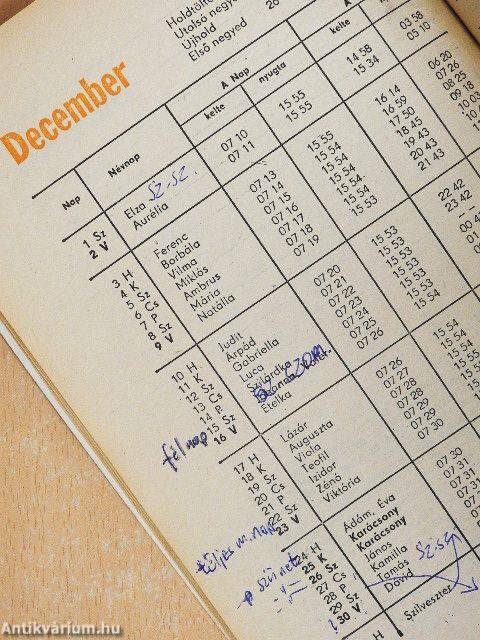 Holdtölte
Utolsó negyed
Újhold
Első negyed
December
Nap Névnap A Nap
kelte nyugta kelte
1 Sz Elza 07 10 15 55 14 58 03 58
2 V Aurélia 07 11 15 55 15 34 05 10
sz-sz.
3 H Ferenc 07 13 15 55 16 14 06 20
4 K Borbála 07 14 15 54 16 59 07 26
5 Sz Vilma 07 15 15 54 17 50 08 25
6 Cs Miklós 07 16 15 54 18 45 09 18
7 P Ambrus 07 17 15 54 19 43 10 03
8 Sz Mária 07 18 15 54 20 43
9 V Natália 07 19 15 53 21 43
10 H Judit 07 20 15 53 22 42
11 K Árpád 07 21 15 53 23 42
12 Sz Gabriella 07 22 15 53
13 Cs Luca 07 23 15 53
14 P Szilárdka 07 24 15 53
15 Sz 07 25 15 53
16 V Etelka 07 26 15 53
félnap
17 H Lázár 07 26 15 54
18 K Auguszta 07 27 15 54
19 Sz Viola 07 28 15 54
20 Cs Teofil 07 28
21 P Izidor 07 29
22 Sz Zénó 07 29
23 V Viktória 07 30
teljes m. nap
24 H Ádám, Éva 07 30
25 K Karácsony 07 31
26 Sz Karácsony 07 31
27 Cs János 07 31
28 P Kamilla
29 Sz Tamás
30 V Dávid
szünet
Szilveszter
Antikvárium.hu